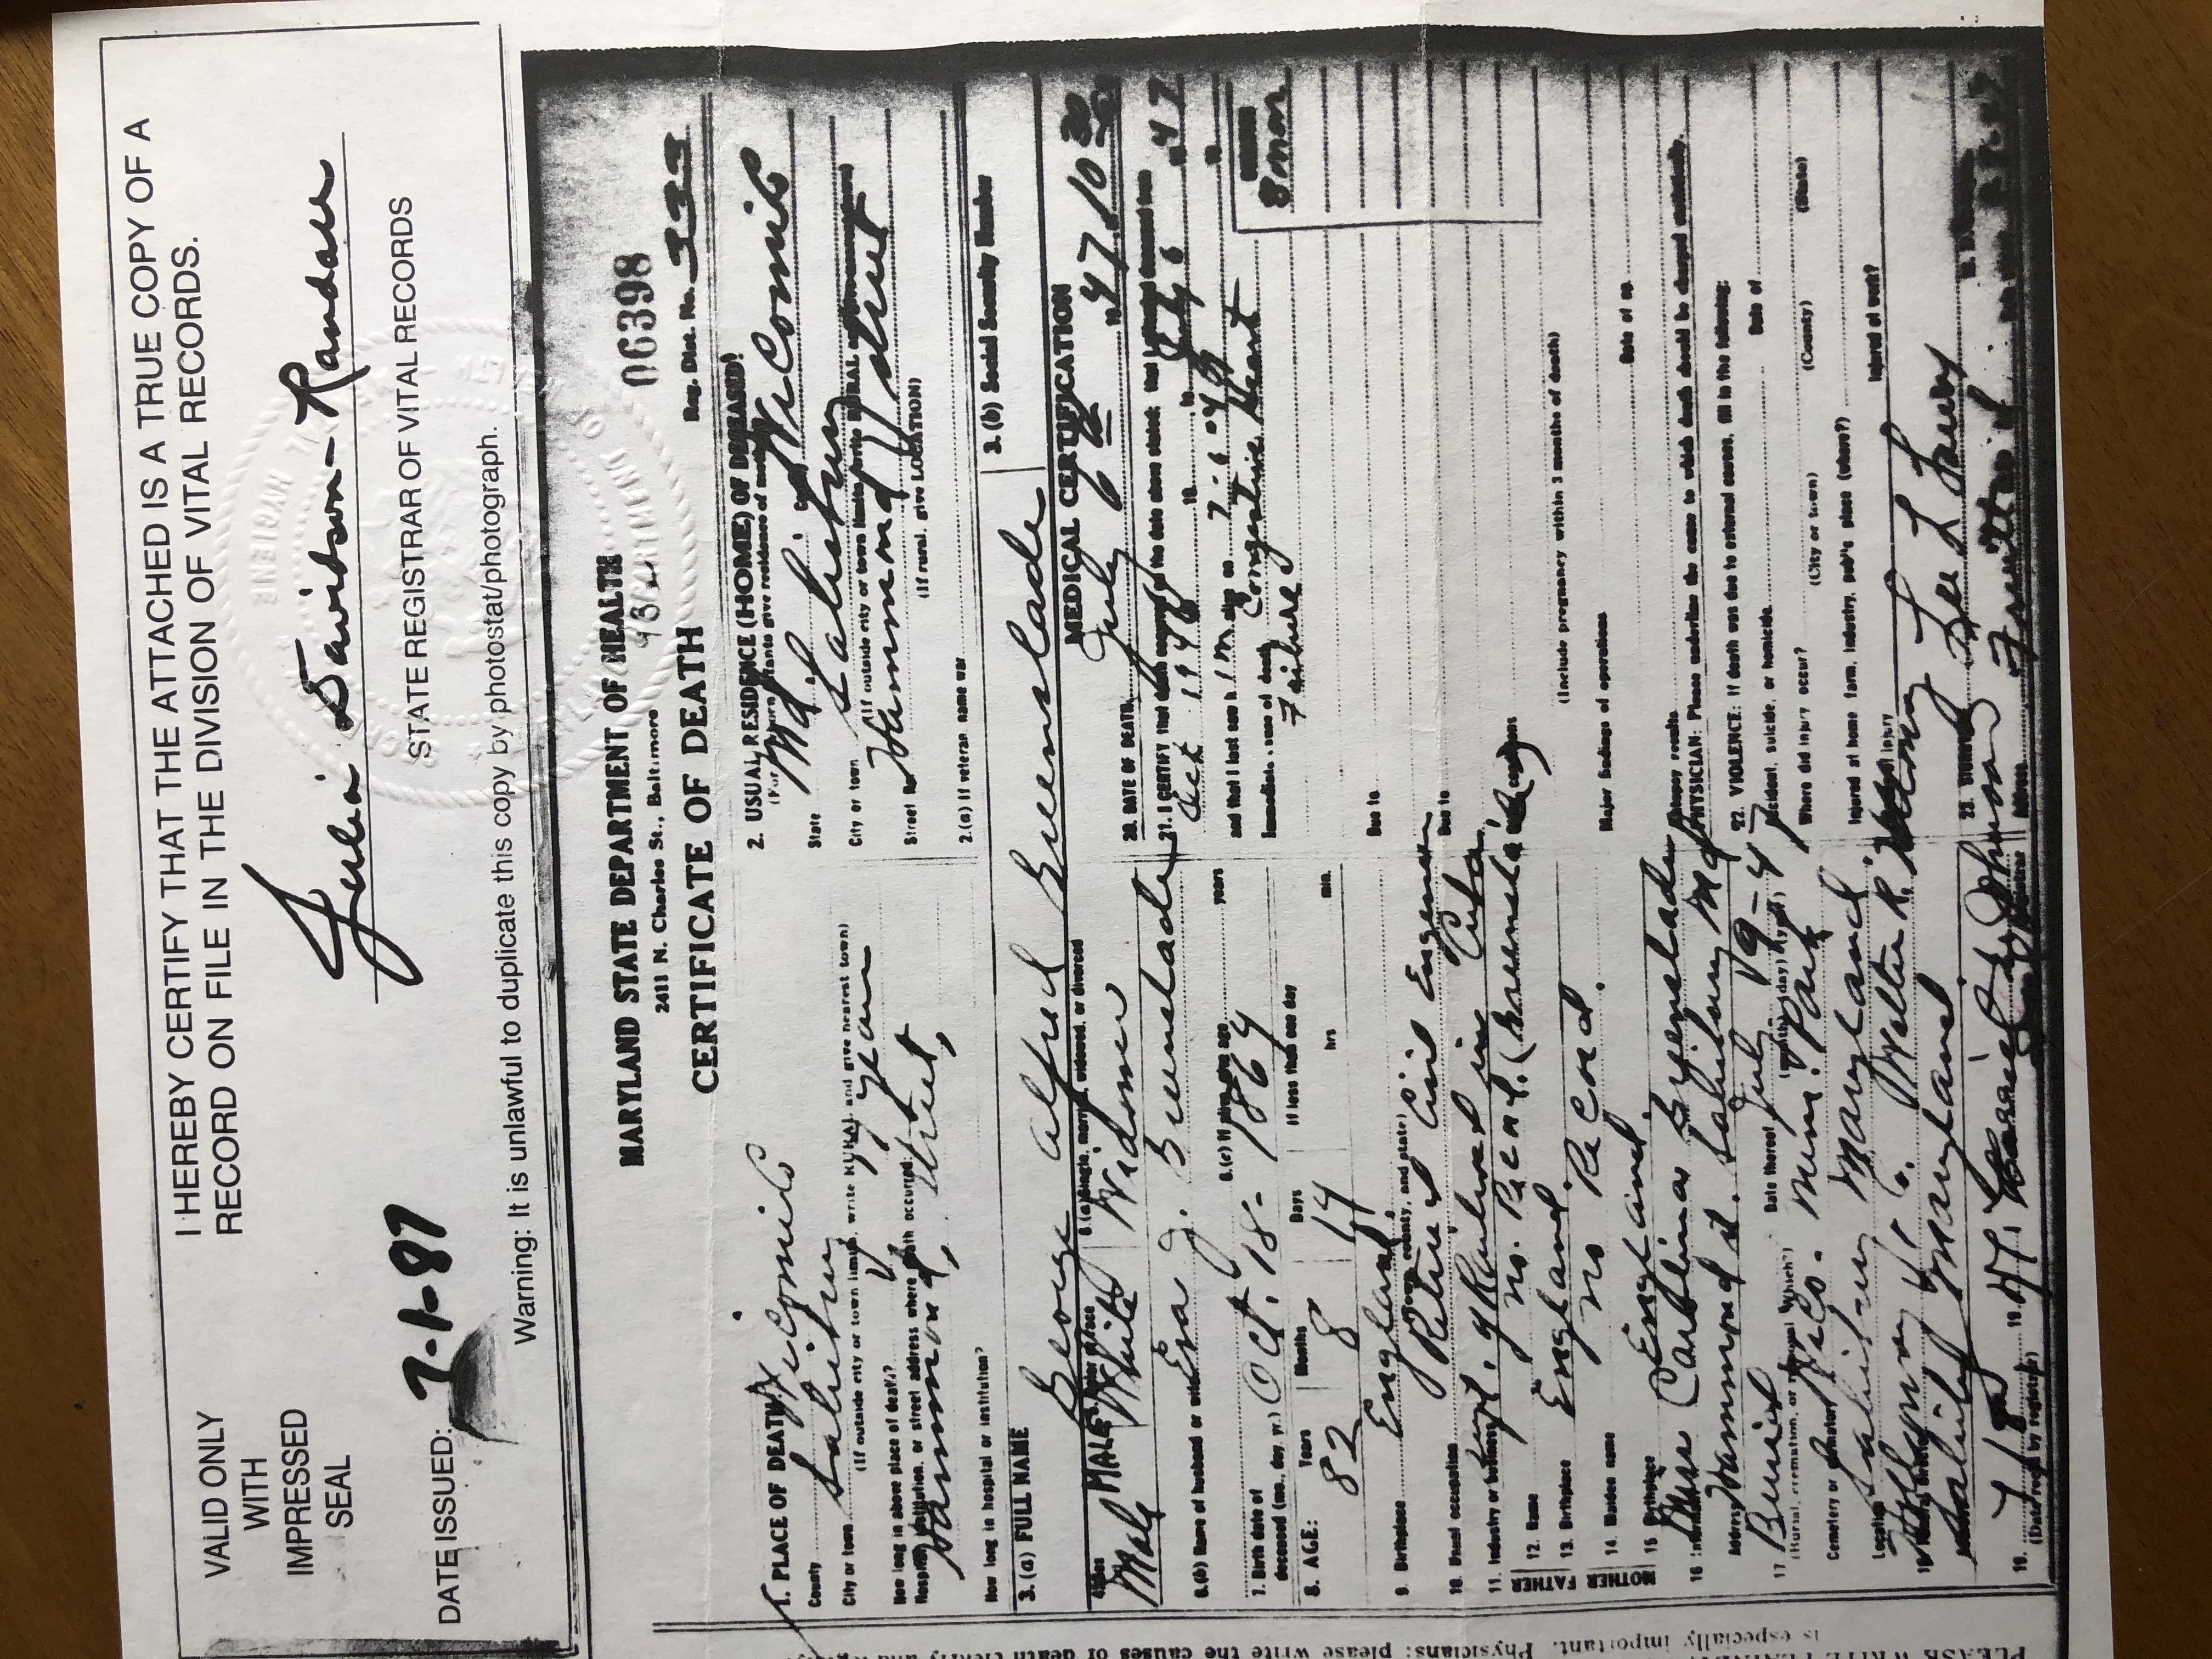 I HEREBY CERTIFY THAT THE ATTACHED IS A TRUE COPY OF A
RECORD ON FILE IN THE DIVISION OF VITAL RECORDS.
VALID ONLY
WITH
IMPRESSED
SEAL
Julia Davidson-Randall
STATE REGISTRAR OF VITAL RECORDS
DATE ISSUED: 7-1-87
Warning: It is unlawful to duplicate this copy by photostat/photograph.
MARYLAND STATE DEPARTMENT OF HEALTH
2411 N. Charles St., Baltimore
06398
CERTIFICATE OF DEATH
Reg. Dist. No. 333
1. PLACE OF DEATH:
County Wicomico
City or town Salisbury
(If outside city or town limits, write RURAL and give nearest town)
How long in above place of death? years
Hospital, institution, or street address where death occurred:
Hammond, Street,
How long in hospital or institution?
2. USUAL RESIDENCE (HOME) OF DECEASED:
(For newborn infants give residence of mother)
State Md. County Wicomico
City or town Salisbury
(If outside city or town limits, write RURAL and give nearest town)
Street No. Hammond Street
(If rural, give LOCATION)
2.(a) If veteran name war
3. (a) FULL NAME
George Alfred Greenslade
3. (b) Social Security Number
4. Sex
Male
MALE
5. Color or race
White
6. (a) Single, married, widowed, or divorced
Widower
6. (b) Name of husband or wife Eva J. Greenslade
6. (c) If alive give age years
7. Birth date of
deceased (mo., day, yr.) Oct. 18- 1864
8. AGE: Years Months Days If less than one day
82 8 14 hrs min.
9. Birthplace England.
(Town, county, and state)
10. Usual occupation Retired Civil Engineer
11. Industry or business Supt. of Railroad in Cuba
FATHER
12. Name no. Record. (Greenslade)
13. Birthplace England.
MOTHER
14. Maiden name no Record.
15. Birthplace England.
16. Informant Miss Carolina Greenslade
Address Hammond St. Salisbury Md
17. Burial Date thereof July 9-47
(Burial, cremation, or removal Which?) (month) (day) (year)
Cemetery or crematory Wico. Mem. Park
Location Salisbury Maryland.
18. Funeral director Holloway Walter R.
Salisbury Maryland.
19. 7/8 1947. Johnson
(Date rec'd by registrar) Registrar
MEDICAL CERTIFICATION
20. DATE OF DEATH July 6th 1947, 10
21. I CERTIFY, that death occurred on the date above stated; that I attended deceased from
Oct 1946 19 to July 6 1947
and that I last saw him alive on 7-6-47 19
Immediate cause of death Congestive Heart
Failure
8 mon
Due to
Due to
Other conditions
(Include pregnancy within 3 months of death)
Major findings of operations
Date of op.
Autopsy results
PHYSICIAN: Please underline the cause to which death should be charged statistically.
22. VIOLENCE: If death was due to external causes, fill in the following:
Accident, suicide, or homicide Date of
Where did injury occur?
(City or town) (County) (State)
Injured at home farm, industry, public place (where?)
Injured at work?
of injury
23. Signature
Address Fruitland
Physicians: please write the causes of death clearly and
is especially important.